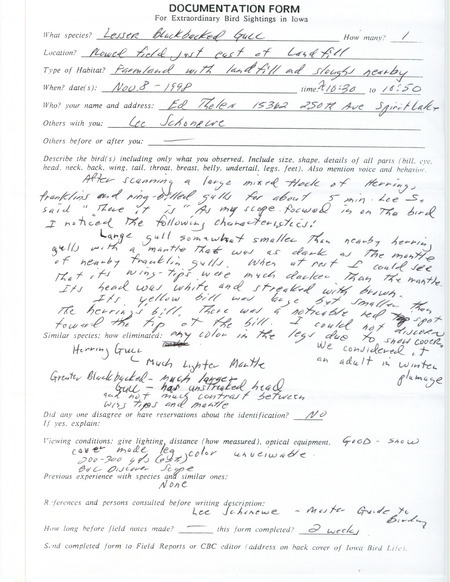 DOCUMENTATION FORM
For Extraordinary Bird Sightings in Iowa
What species? Lesser Blackbacked Gull How many? 1
Location? Plowed field just east of Landfill
Type of Habitat? Farmland with landfill and sloughs nearby
When? date(s): Nov. 8 - 1998 time: 10:30 to 10:50
Who? your name and address: Ed Thelen 15362 250th Ave Spirit Lake
Others with you: Lee Schoenewe
Others before or after you:
Describe the bird(s) including only what you observed. Include size, shape, details of all parts (bill, eye,
head, neck, back, wing, tail, throat, breast, belly, undertail, legs, feet). Also mention voice and behavior.
After scanning a large mixed flock of Herring,
franklins and ring-billed gulls for about 5 min. Lee S.
said "There it is" As my scope focused in on the bird
I noticed the following characteristics:
Large gull somewhat smaller than nearby herring
gulls with a mantle that was as dark as the mantle
of nearby franklin gulls. When at rest I could see
that its wing-tips were much darker than the mantle.
Its head was white and streaked with brown.
Its yellow bill was large but smaller than
the herring's bill. There was a noticable red spot
toward the tip of the bill. I could not discern
any color in the legs due to snow cover.
We considered it
an adult in winter
plumage
Similar species: how eliminated:
Herring Gull
- Much Lighter Mantle
Greater Blackbacked - much larger
Gull - has unstreaked head
and not much contrast between
wing tips and mantle
Did any one disagree or have reservations about the identification? NO
If yes, explain:
Viewing conditions: give lighting, distance (how measured), optical equipment. GOOD - snow
cover made leg color unviewable.
200-300 yds (est.)
B&L Discover Scope
Previous experience with species and similar ones:
None
References and persons consulted before writing description:
Lee Schoenewe - Master Guide to
Birding
How long before field notes made? — this form completed? 2 weeks
Send completed form to Field Reports or CBC editor (address on back cover of Iowa Bird Life).